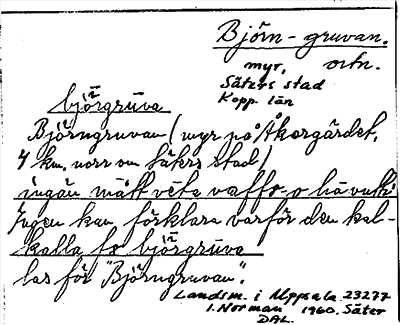 Björn-gruvan.
myr, ortn.
Säters stad
Kopp. län
björgrùva
Björngruvan (myr på Åkorgärdet,
4 km. norr om Säters stad)
ingän mätt veta vaffo
Ingen kan förklara varför den kal-
kalla björgrùva
las för "Björngruvan".
Landsm. i Uppsala 23277
I. Norman 1960. Säter
DAL.